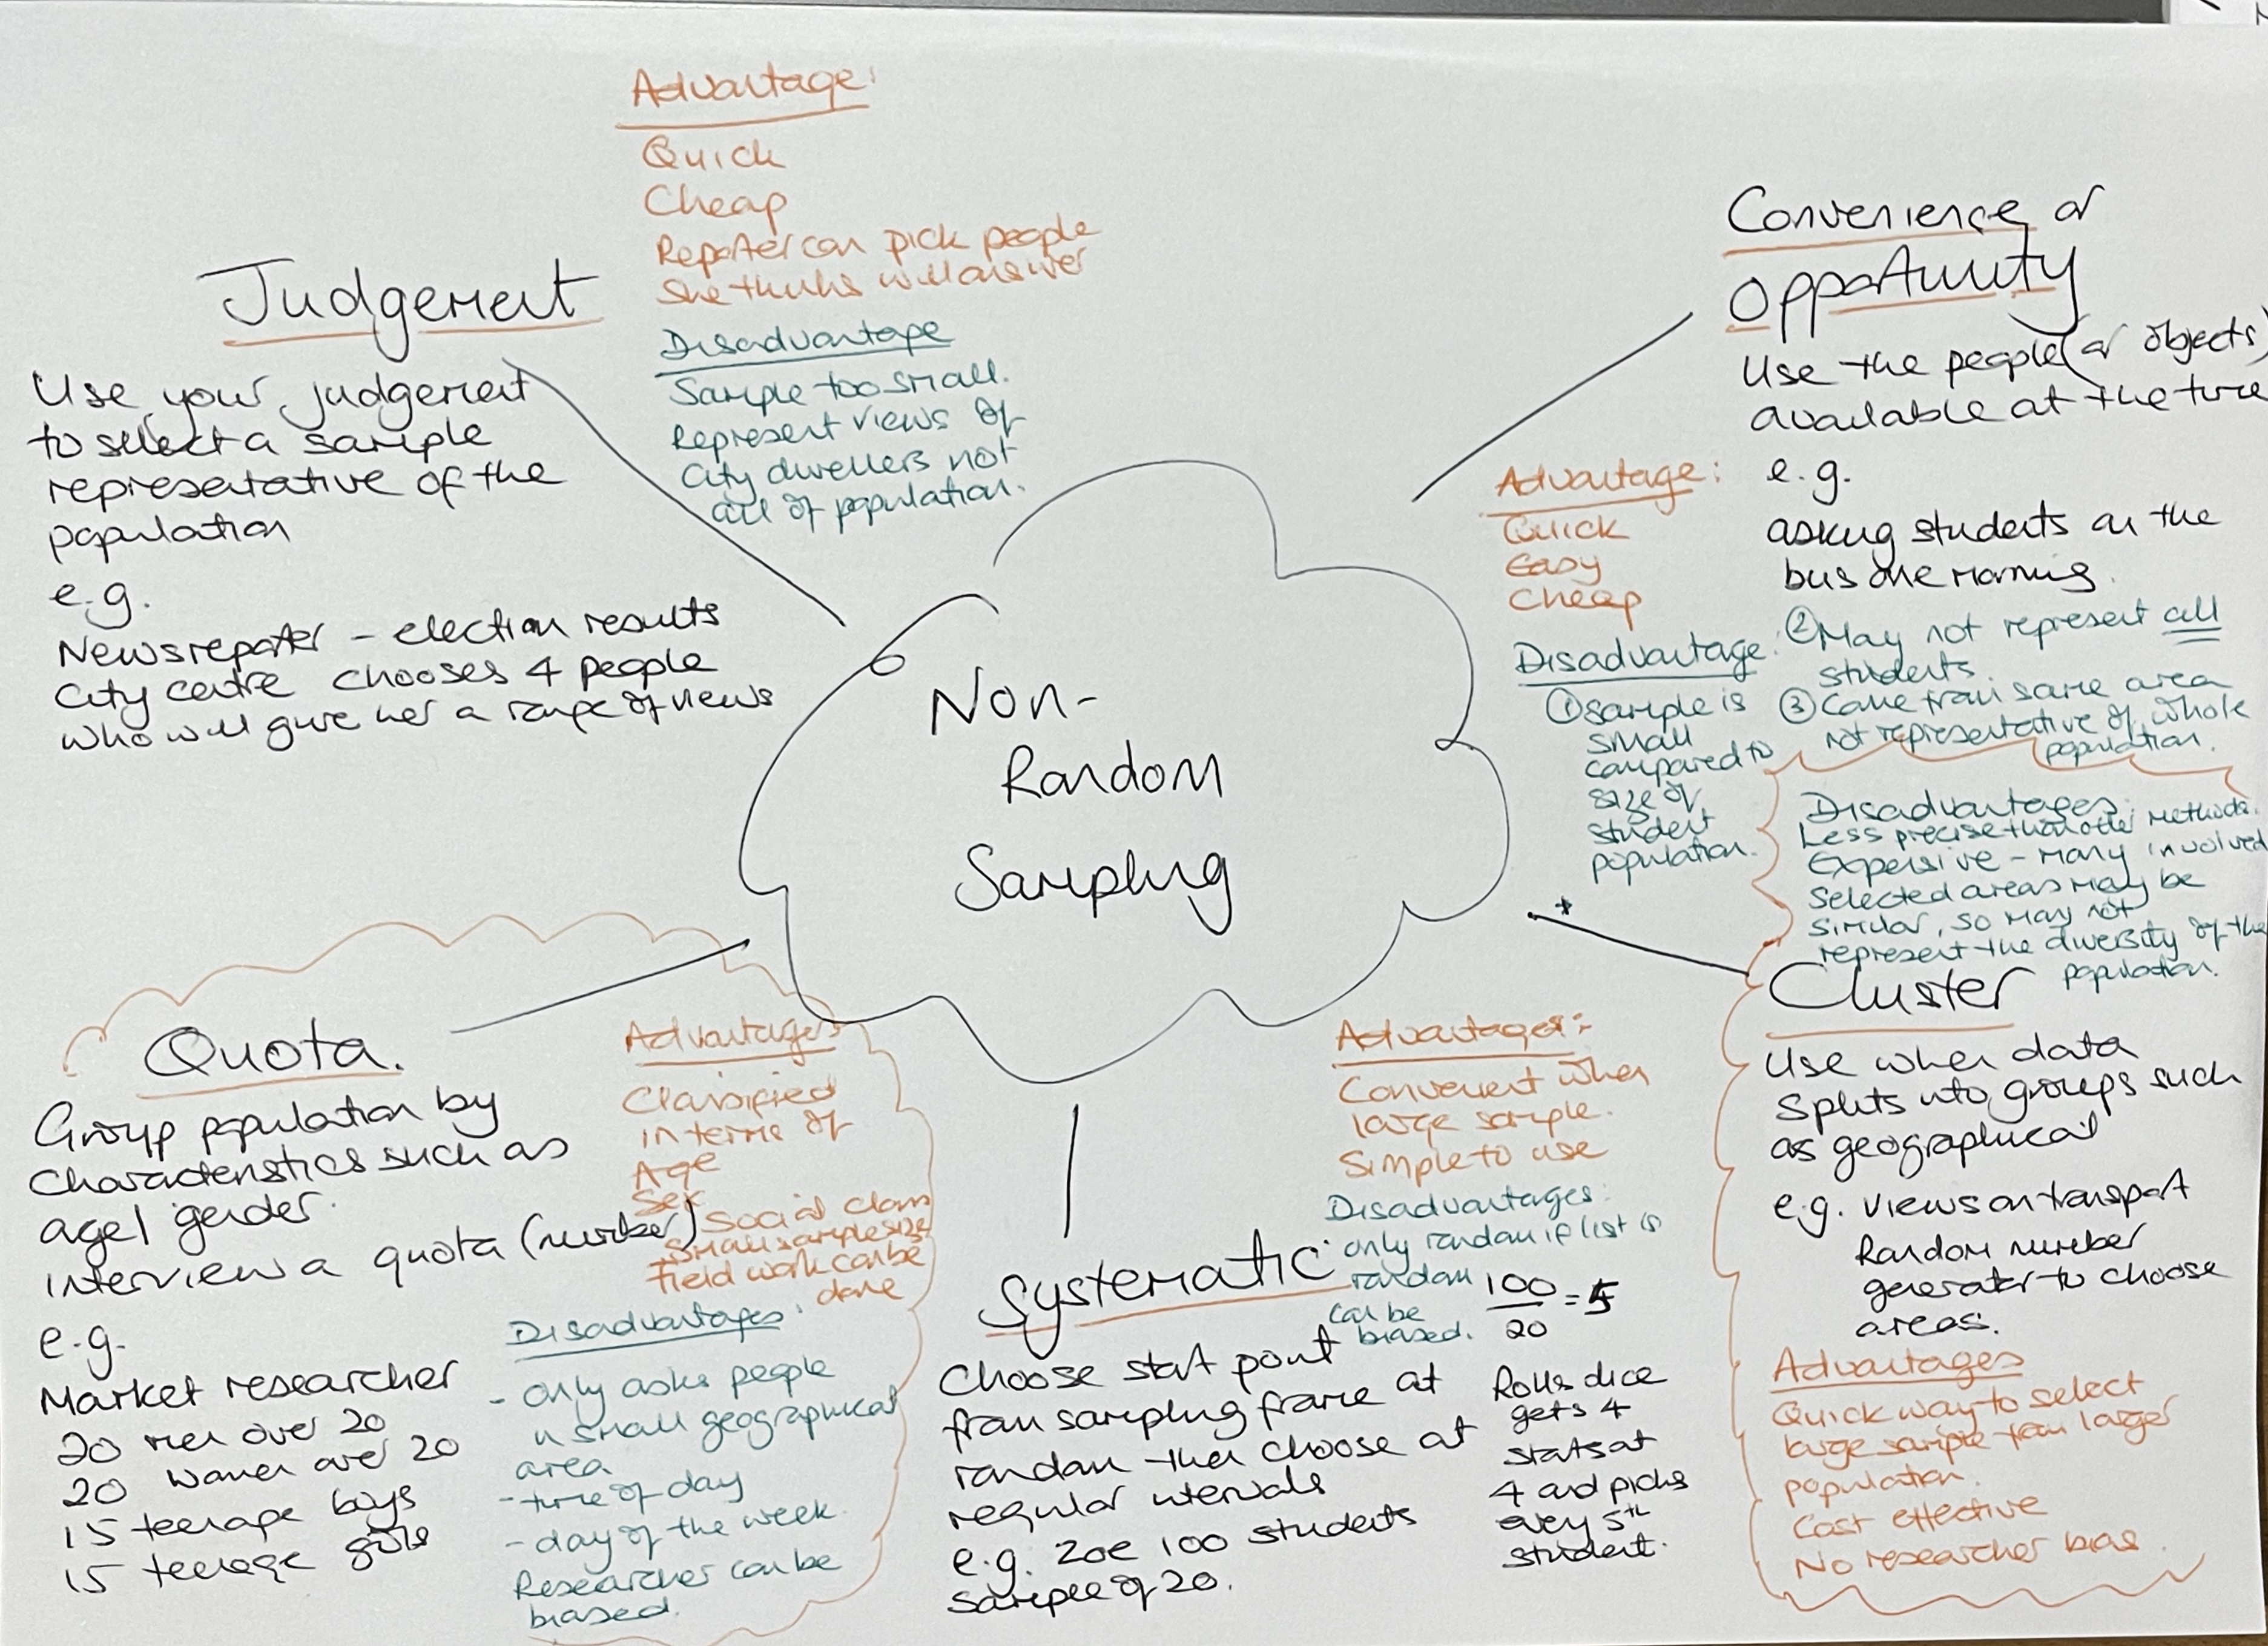 Non-
Random
Sampling
Judgement
Use your judgement
to select a sample
representative of the
population
e.g.
News reporter - election results
City centre chooses 4 people
who will give her a range of views
Advantage:
Quick
Cheap
Reporter can pick people
she thinks will answer
Disadvantage
Sample too small.
Represent views of
City dwellers not
all of population.
Convenience or
Opportunity
Use the people (or objects)
available at the time
e.g.
asking students on the
bus one morning.
Advantage:
Quick
Easy
Cheap
Disadvantage:
① Sample is
small
compared to
size of
student
population.
② May not represent all
students.
③ Come from same area
not representative of whole
population.
Disadvantages:
Less precise than other methods.
Expensive - many involved
Selected areas may be
similar, so may not
represent the diversity of the
population.
Cluster
Use when data
splits into groups such
as geographical
e.g. views on transport
Random number
generator to choose
areas.
Advantages
Quick way to select
large sample from larger
population.
Cost effective
No researcher bias.
Quota.
Group population by
characteristics such as
age/gender.
Interview a quota (number)
e.g.
Market researcher
20 men over 20
20 women over 20
15 teenage boys
15 teenage girls
Advantages
Classified
in terms of
Age
Sex
Social class
Small sample size
Field work can be
done
Disadvantages:
- Only asks people
in small geographical
area
- time of day
- day of the week.
Researcher can be
biased.
Systematic
Choose start point
from sampling frame at
random then choose at
regular intervals
e.g. Zoe 100 students
Sample of 20.
Advantages:
Convenient when
large sample.
Simple to use
Disadvantages:
only random if list is
random
can be
biased.
100
20
= 5
Rolls dice
gets 4
starts at
4 and picks
every 5th
student.